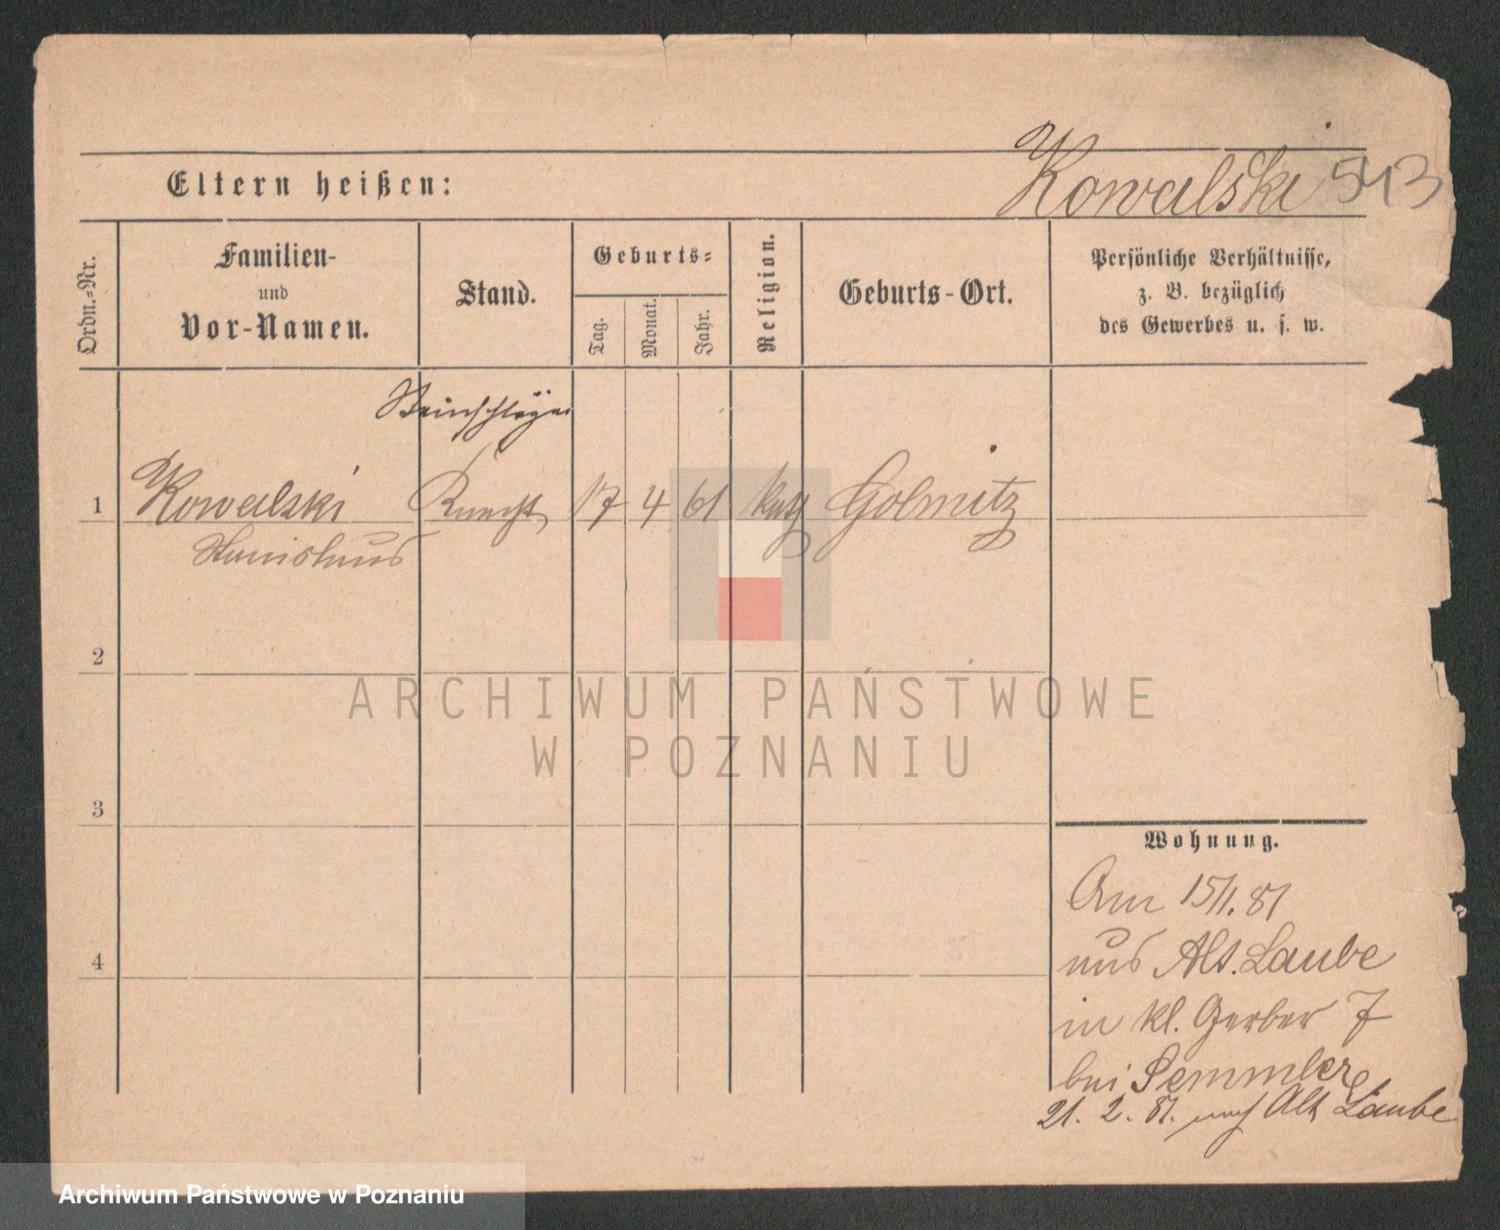 Eltern heißen:
Kowalski 543
Ordn.-Nr.
Familien-
und
Vor-Namen.
Stand.
Geburts-
Tag.
Monat.
Jahr.
Religion.
Geburts-Ort.
Persönliche Verhältnisse,
z. B. bezüglich
des Gewerbes u. s. w.
Steinschläger
1 Kowalski Knecht 17 4 61 kath Golmitz
Stanislaus
2
3
4
ARCHIWUM PAŃSTWOWE
W POZNANIU
Wohnung.
Am 15/1. 81
aus Alt. Laube
in kl. Gerber 7
bei Semmler
21. 2. 81. nach Alt Laube
Archiwum Państwowe w Poznaniu